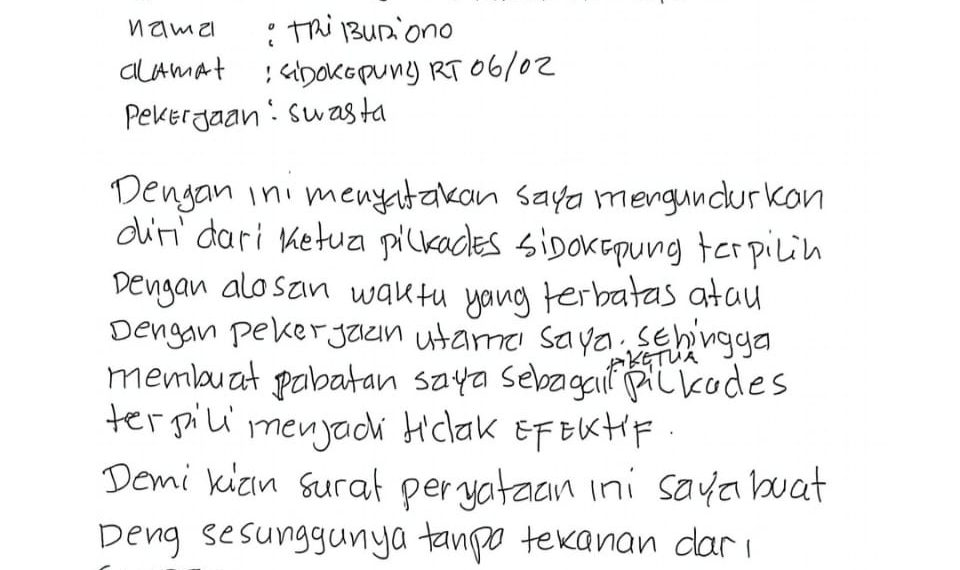 nama : TRi BUDiONO
ALAMAT : SiDOKEPUNG RT 06/02
PEKERJaan : Swasta
Dengan ini menyatakan saya mengundurkan
diri dari Ketua pilkades SiDOKEPUNG terpilih
Dengan alosan waktu yang terbatas atau
Dengan pekerjaan utama saya. sehingga
KETUA
membuat pabatan saya sebagai pilkades
terpili menjadi tidak EFEKTIF.
Demi kian surat peryataan ini saya buat
Deng sesunggunya tanpa tekanan dari